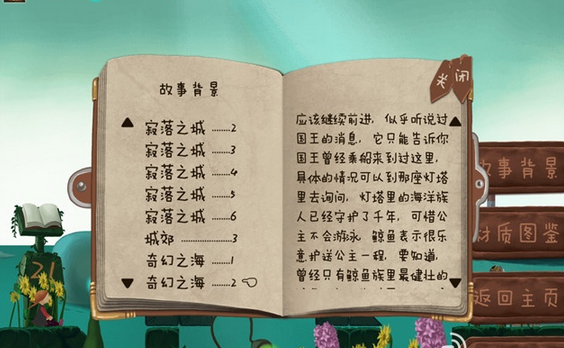 故事背景
寂落之城 ........2
寂落之城 ........3
寂落之城 ........4
寂落之城 ........5
寂落之城 ........6
城郊 ................3
奇幻之海 ........1
奇幻之海 ........2
关闭
应该继续前进，似乎听说过
国王的消息，它只能告诉你
国王曾经乘船来到过这里，
具体的情况可以到那座灯塔
里去询问，灯塔里的海洋族
人已经守护了千年，可惜公
主不会游泳，鲸鱼表示很乐
意护送公主一程，要知道，
曾经只有鲸鱼族里最健壮的
故事背景
材质图鉴
返回主页